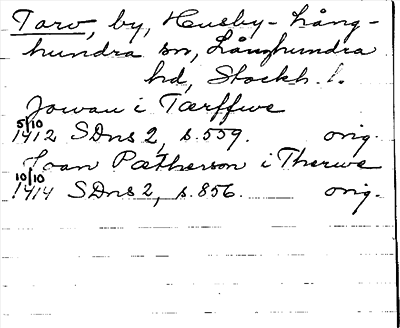 Tarv, by, Husby-Lång-
hundra sn, Långhundra
hd, Stockh. l.
Jowan i Tærffwe
5/10
1412 SDns 2, s. 559. orig.
Joan Pætherson i Therwe
10/10
1414 SDns 2, s. 856. orig.